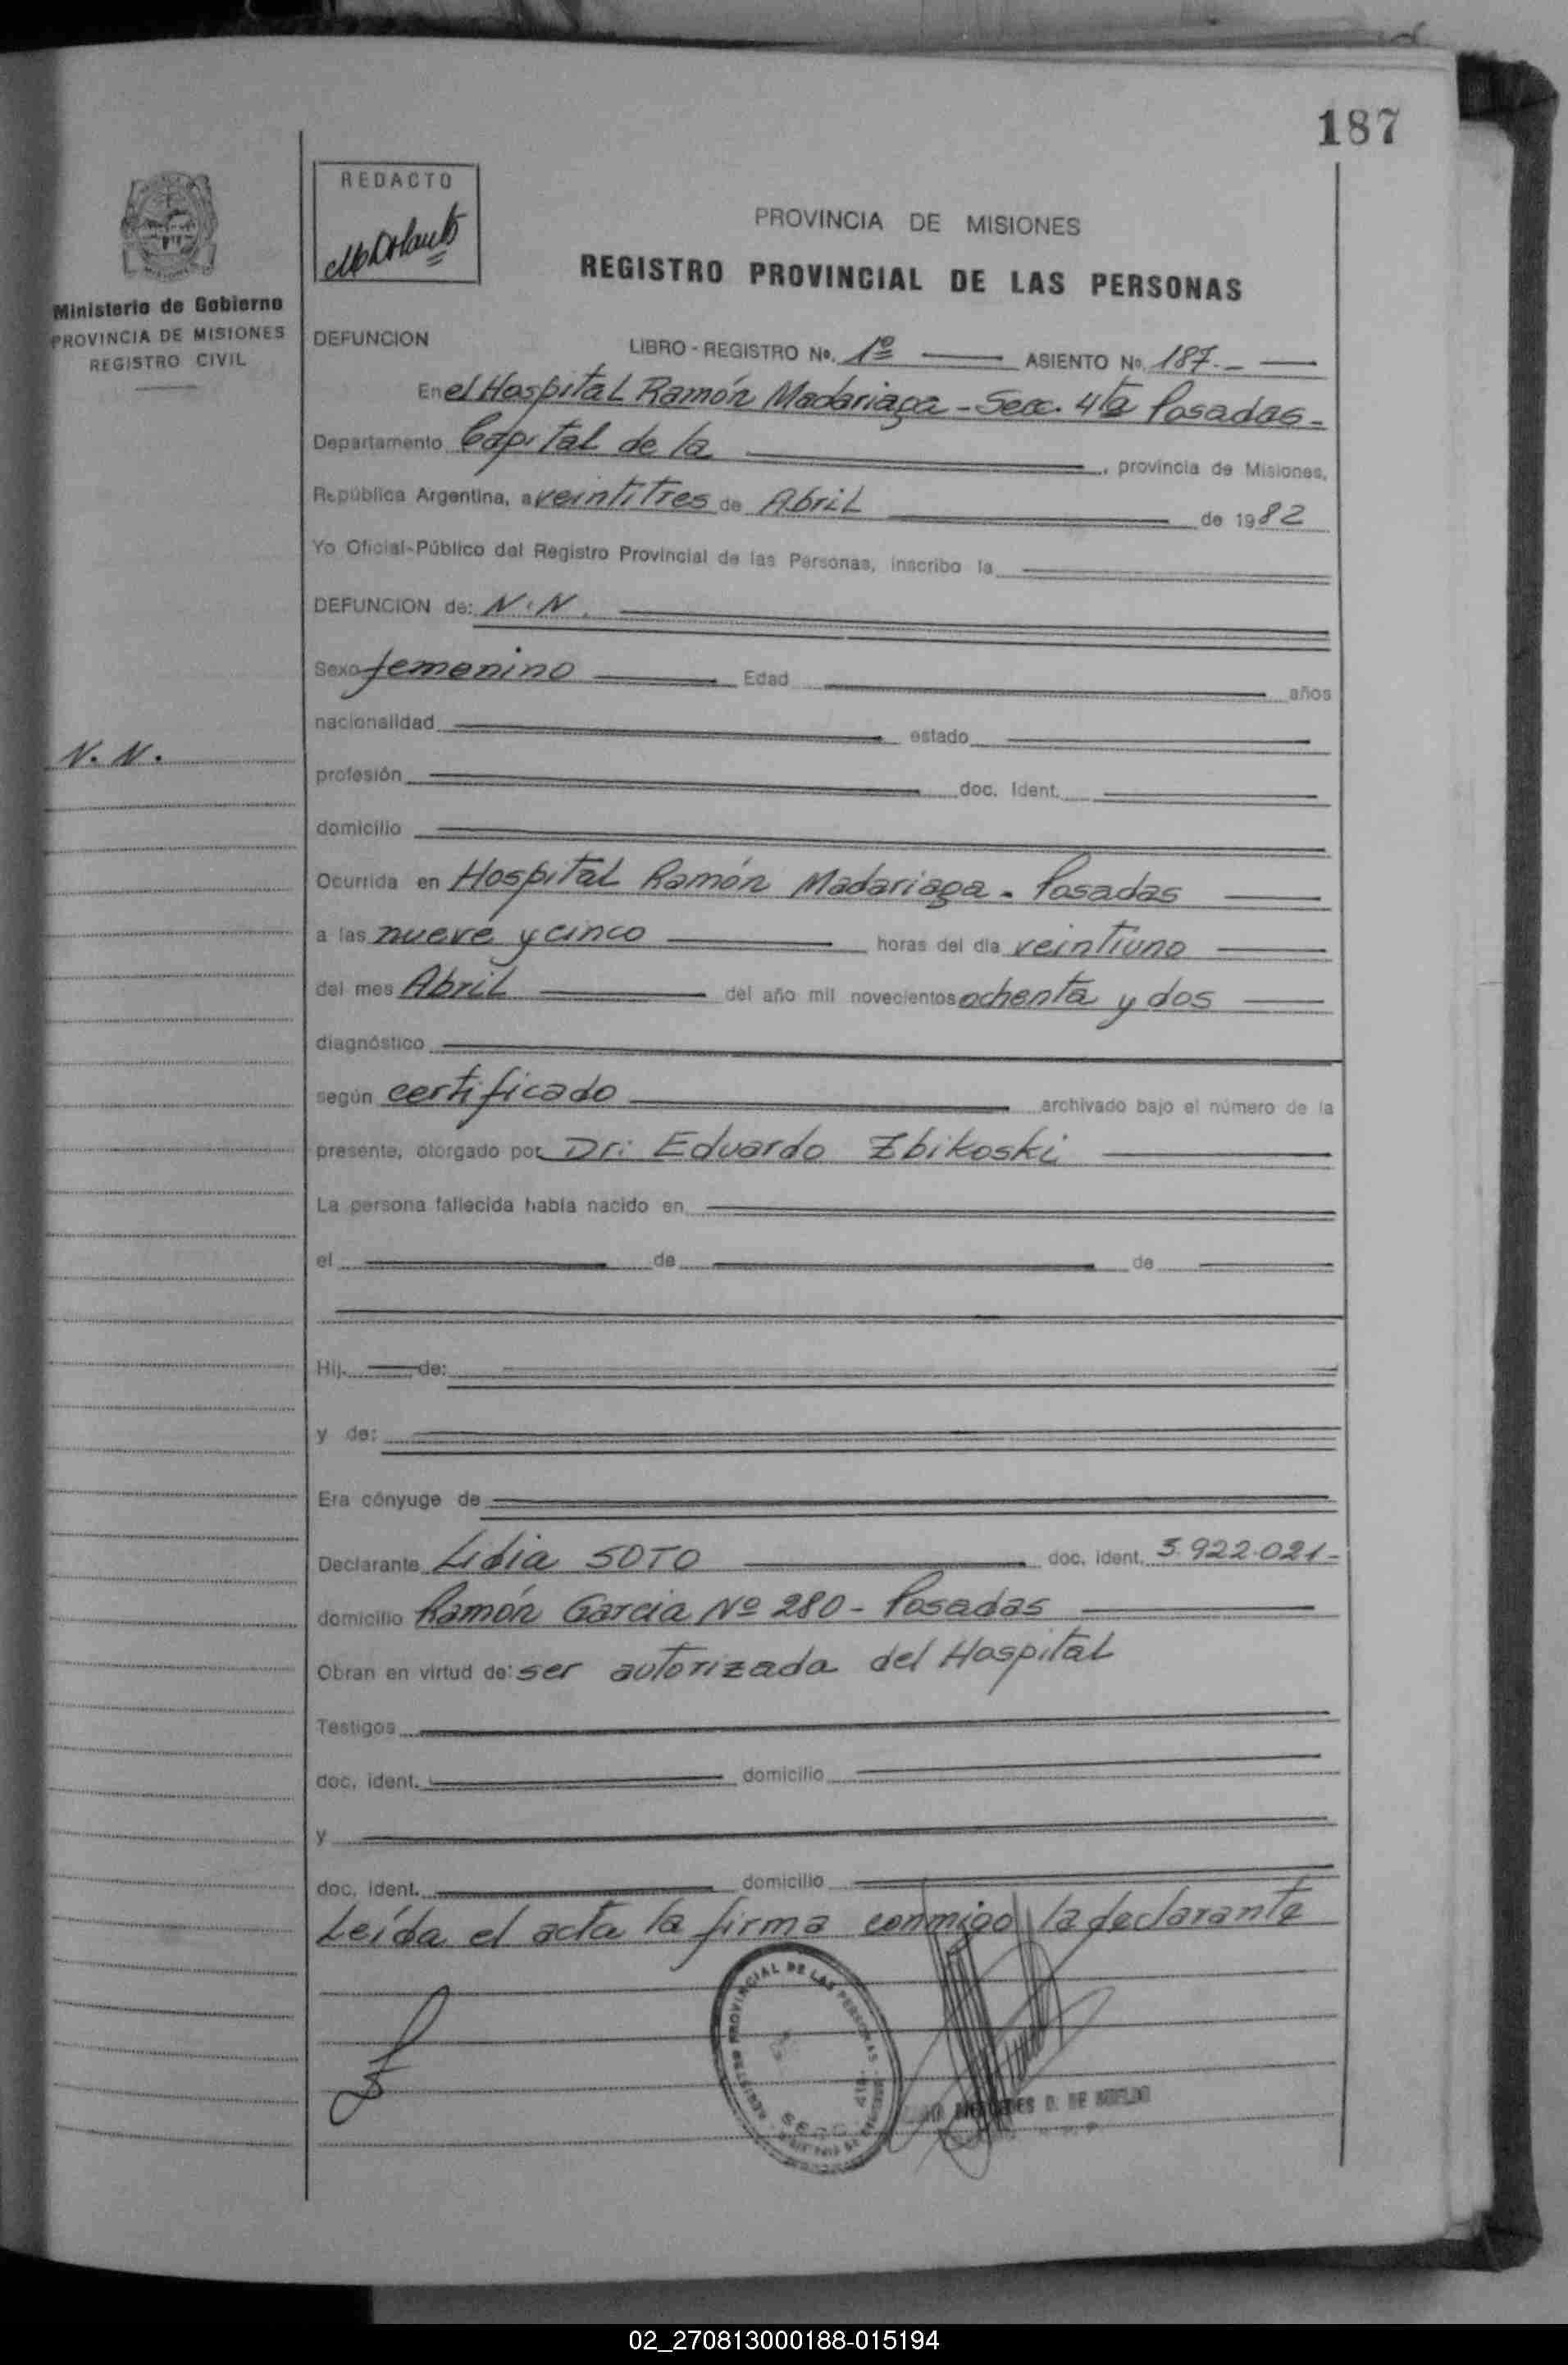 187
REDACTO
PROVINCIA DE MISIONES
REGISTRO PROVINCIAL DE LAS PERSONAS
Ministerio de Gobierno
PROVINCIA DE MISIONES
REGISTRO CIVIL
DEFUNCION LIBRO - REGISTRO No. 1º ASIENTO No. 187.-
En el Hospital Ramón Madariaga - Secc. 4ta Posadas -
Departamento Capital de la , provincia de Misiones,
República Argentina, a veintitres de Abril de 1982
Yo Oficial-Público del Registro Provincial de las Personas, inscribo la
DEFUNCION de: N.N.
Sexo femenino Edad años
nacionalidad estado
N.N.
profesión doc. Ident.
domicilio
Ocurrida en Hospital Ramón Madariaga - Posadas
a las nueve y cinco horas del día veintiuno
del mes Abril del año mil novecientos ochenta y dos
diagnóstico
según certificado archivado bajo el número de la
presente, otorgado por Dr: Eduardo Zbikoski
La persona fallecida había nacido en
el de de
Hij. de:
y de:
Era cónyuge de
Declarante Lidia SOTO doc. ident. 5.922.021-
domicilio Ramón Garcia Nº 280 - Posadas
Obran en virtud de: ser autorizada del Hospital
Testigos
doc. ident. domicilio
y
doc. ident. domicilio
Leída el acta la firma conmigo la declarante
REGISTRO PROVINCIAL DE LAS PERSONAS
02_270813000188-015194